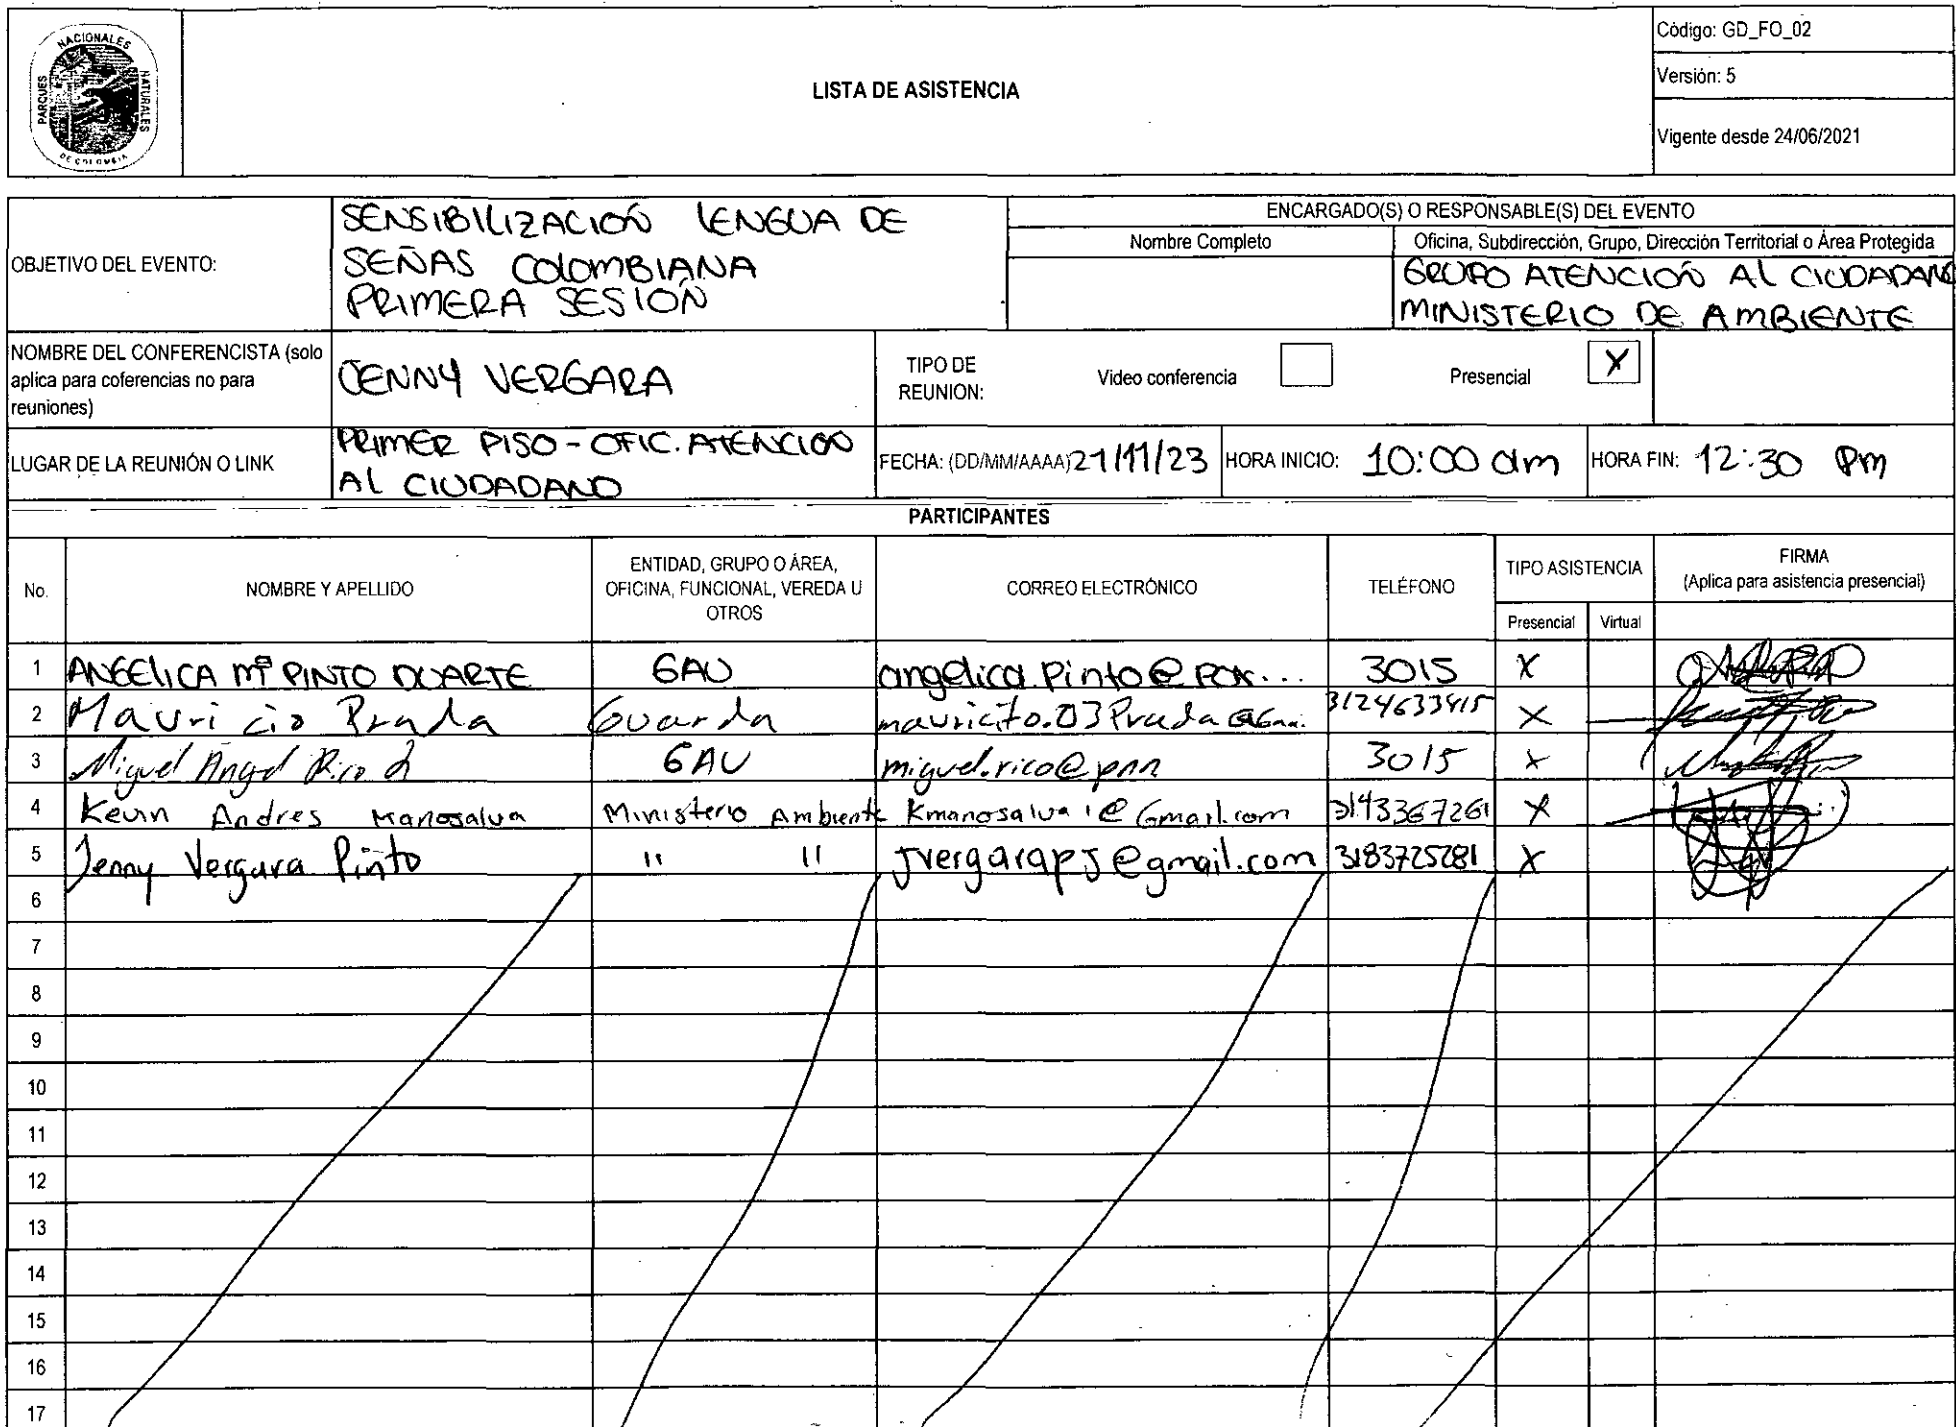 NACIONALES
PARQUES
NATURALES
DE COLOMBIA
LISTA DE ASISTENCIA
Código: GD_FO_02
Versión: 5
Vigente desde 24/06/2021
OBJETIVO DEL EVENTO:
SENSIBILIZACIÓN LENGUA DE
SEÑAS COLOMBIANA
PRIMERA SESIÓN
ENCARGADO(S) O RESPONSABLE(S) DEL EVENTO
Nombre Completo
Oficina, Subdirección, Grupo, Dirección Territorial o Área Protegida
GRUPO ATENCIÓN AL CIUDADANO
MINISTERIO DE AMBIENTE
NOMBRE DEL CONFERENCISTA (solo
aplica para coferencias no para
reuniones)
JENNY VERGARA
TIPO DE
REUNION:
Video conferencia
Presencial X
LUGAR DE LA REUNIÓN O LINK
PRIMER PISO - OFIC. ATENCION
AL CIUDADANO
FECHA: (DD/MM/AAAA) 21/11/23 HORA INICIO: 10:00 am HORA FIN: 12:30 Pm
PARTICIPANTES
No.
NOMBRE Y APELLIDO
ENTIDAD, GRUPO O ÁREA,
OFICINA, FUNCIONAL, VEREDA U
OTROS
CORREO ELECTRÓNICO
TELÉFONO
TIPO ASISTENCIA
Presencial Virtual
FIRMA
(Aplica para asistencia presencial)
1 ANGELICA Mª PINTO DUARTE GAU angelica.pinto@ 3015 X
2 Mauricio Prada Guarda mauricito.03Prada 3124633415 X
3 Miguel Angel Rico GAU miguel.rico@pnn 3015 X
4 Kevin Andres Manosalva Ministerio Ambiente Kmanosalva1@Gmail.com 3143367261 X
5 Jenny Vergara Pinto " " Jvergarapj@gmail.com 3183725281 X
6
7
8
9
10
11
12
13
14
15
16
17